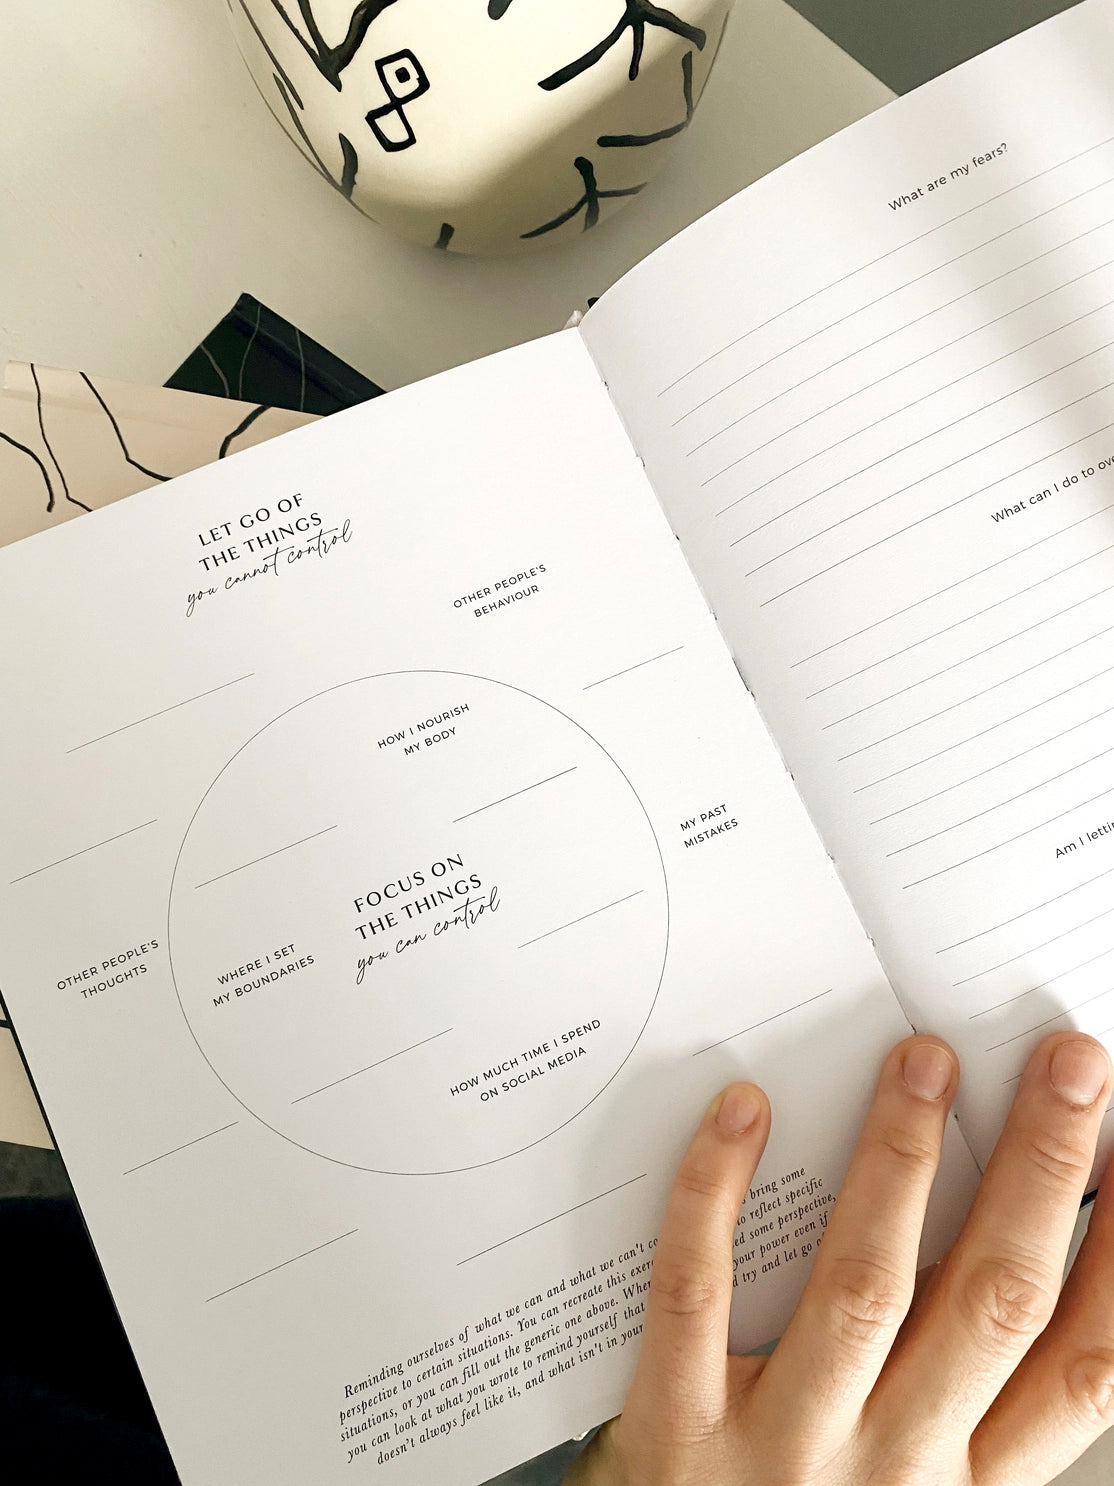 LET GO OF
THE THINGS
you cannot control
OTHER PEOPLE'S
BEHAVIOUR
HOW I NOURISH
MY BODY
MY PAST
MISTAKES
FOCUS ON
THE THINGS
you can control
OTHER PEOPLE'S
THOUGHTS
WHERE I SET
MY BOUNDARIES
HOW MUCH TIME I SPEND
ON SOCIAL MEDIA
Reminding ourselves of what we can and what we can't bring some
perspective to certain situations. You can recreate this reflect specific
situations, or you can fill out the generic one above. some perspective,
you can look at what you wrote to remind yourself that your power even if
doesn't always feel like it, and what isn't in your try and let go
What are my fears?
What can I do to
Am I